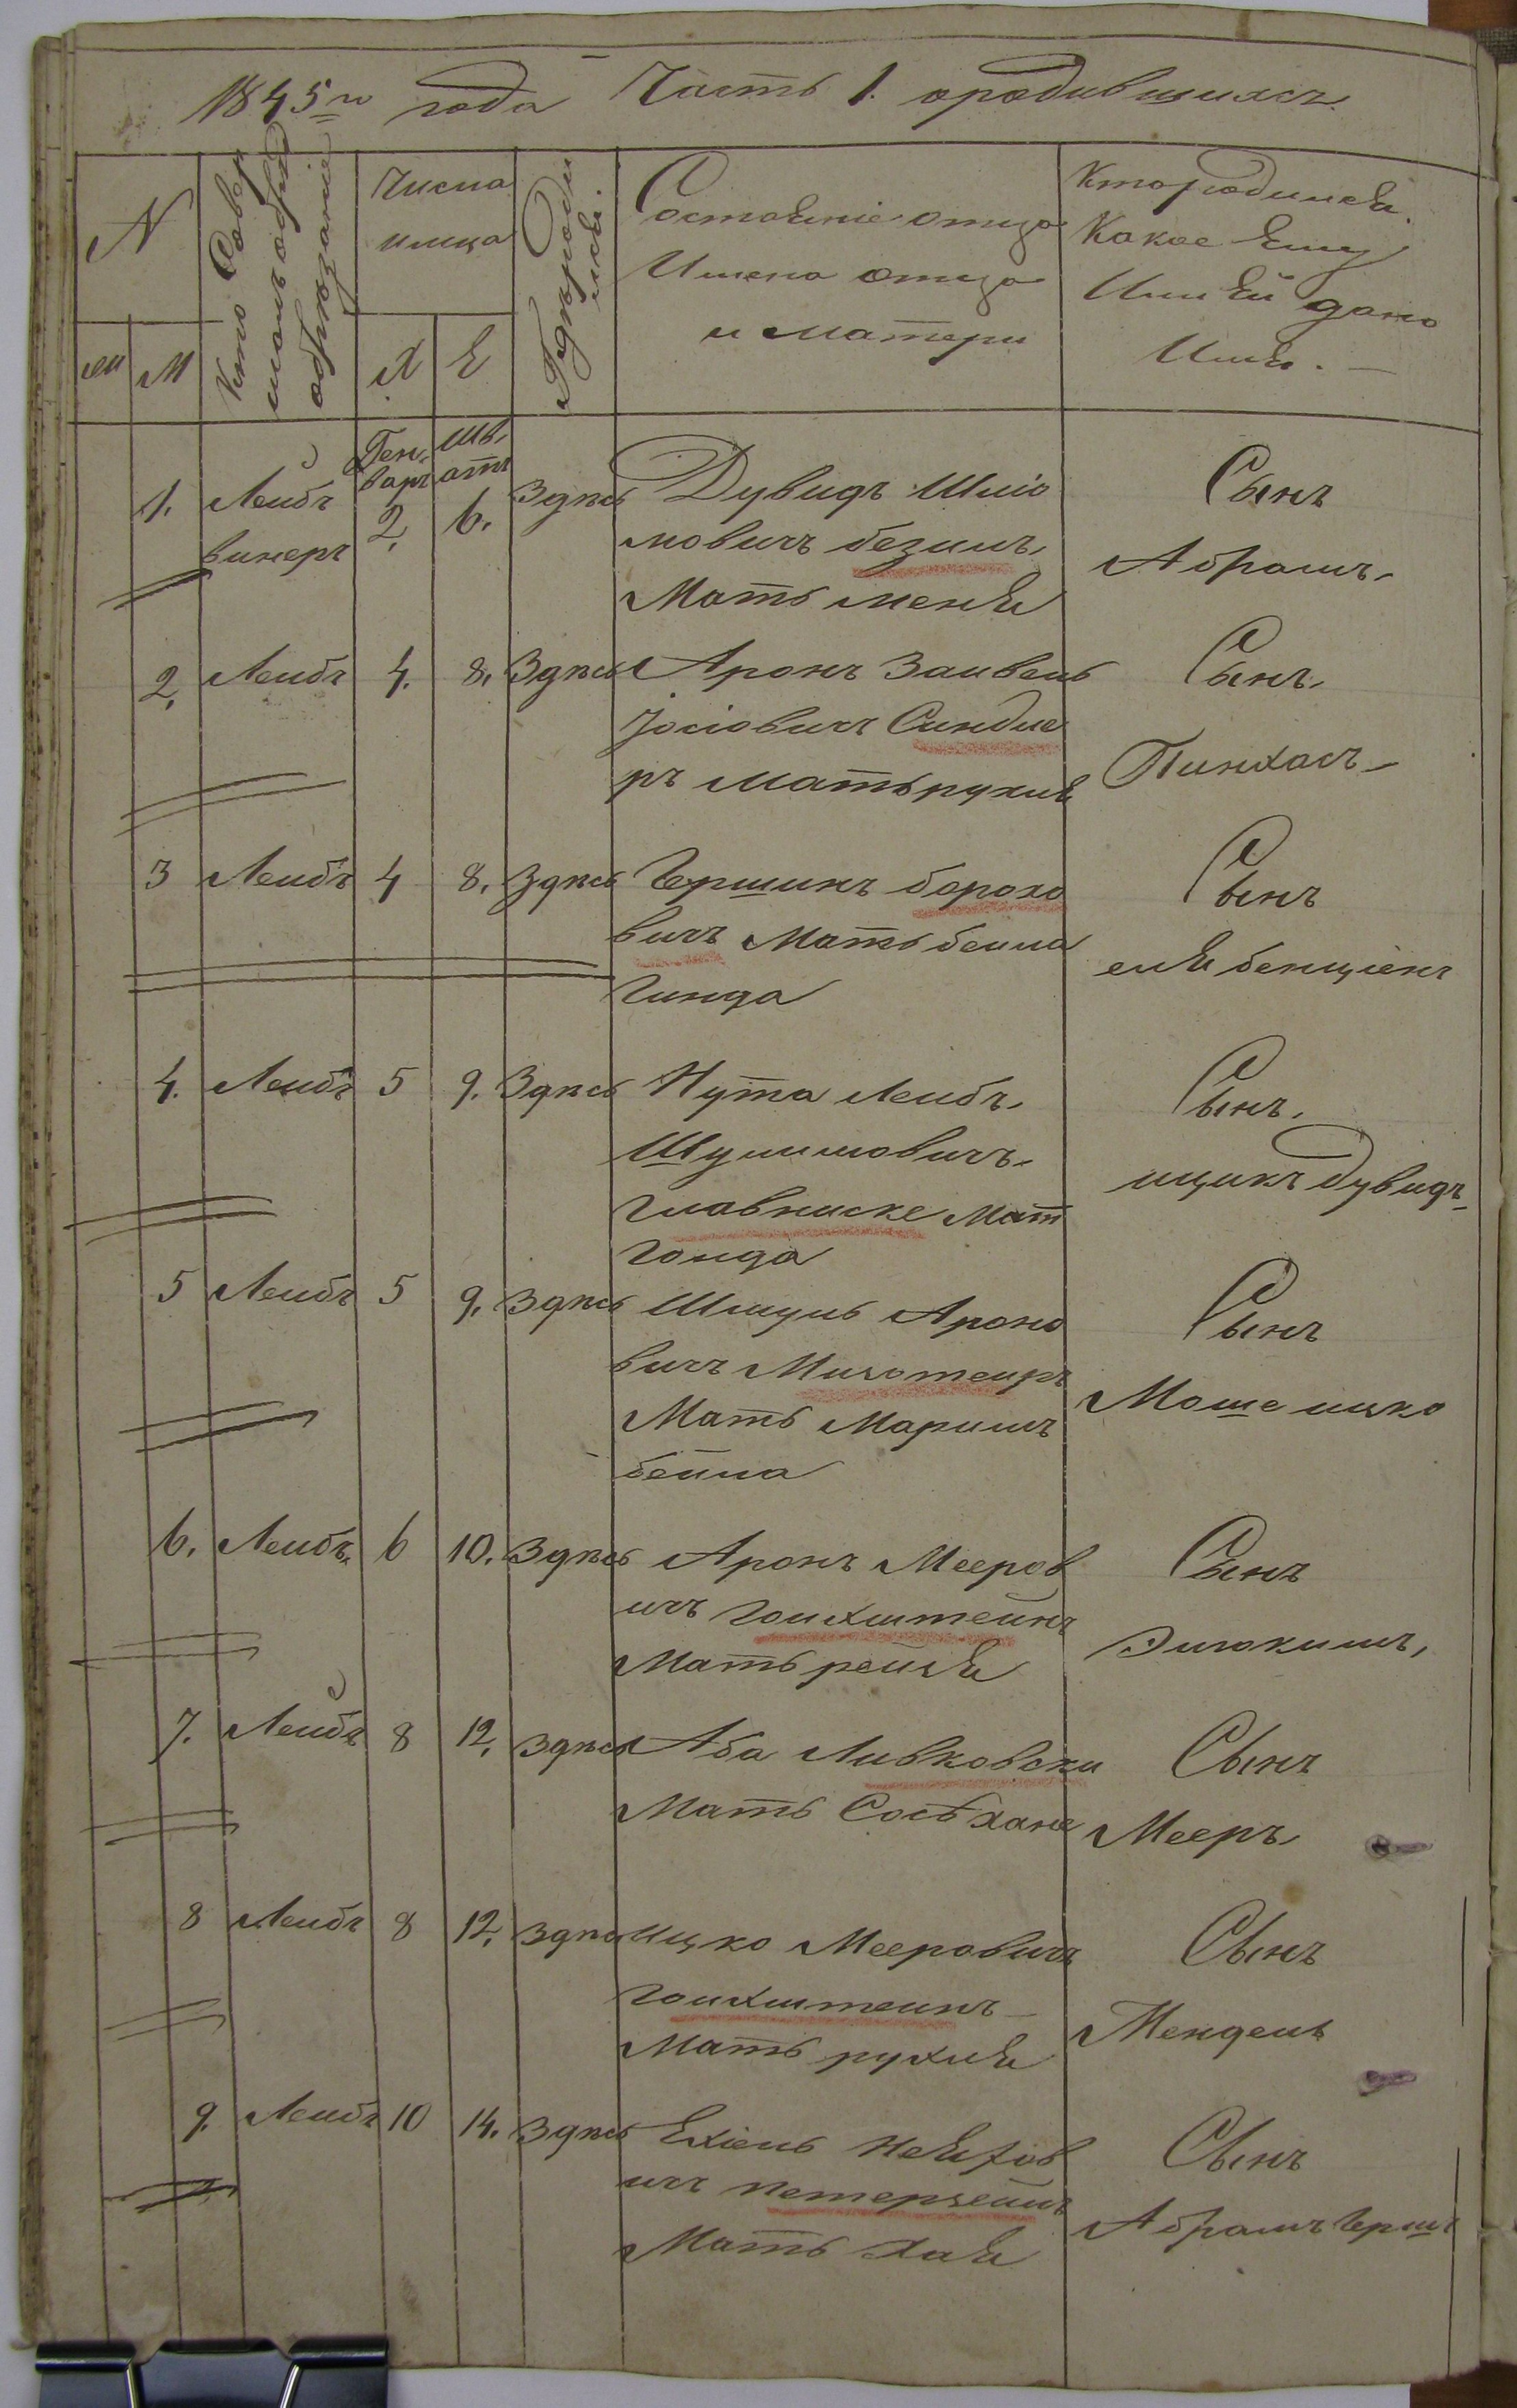 1845го года Часть 1. ородившихся.
N
Кто Совер
шалъ обрядъ
обрѣзанія
Числа
илица
Гдѣ роди
лся.
Состояніе отца
Имена отца
и матери
Кто родился.
Какое Ему
Или Ей дано
Имя. —
М
Х
Е
Ген.
варъ
Шв.
атъ
1. Лейбъ
винеръ
2. 6. Здѣсь
Дувидъ Шліо
мовичъ безимъ,
Мать меня
Сынъ
Абрамъ,
2. Лейбъ 4. 8. Здѣсь
Аронъ Заивель
Іосіовичъ Синдле
ръ Мать рухля
Сынъ,
Пинхасъ,
3 Лейбъ 4 8. Здѣсь
Гершикъ борохо
вичъ Мать бейла
Гинда
Сынъ
еля бенціенъ
4. Лейбъ 5 9. Здѣсь
Нута Лейбъ,
Шулимовичъ,
Главниске Мат
Голда
Сынъ.
ицикъ дувидъ
5 Лейбъ 5 9. Здѣсь
Шмуль Ароно
вичъ
Мать Маримъ
бейла
Сынъ
Моше ицко
6. Лейбъ 6 10. Здѣсь
Аронъ Мееров
ичъ Гоихштейнъ
Мать рейзя
Сынъ
Элюкимъ,
7. Лейбъ 8 12. Здѣсь
Аба Ливковски
Мать Сосѣ хане
Сынъ
Мееръ
8 Лейбъ 8 12. Здѣсь
Ицко Мееровичъ
Гоихштеинъ
Мать рухля
Сынъ
Мендель
9. Лейбъ 10 14. Здѣсь
Ехіель
ичъ
Мать Хая
Сынъ
Абрамъ Гершъ